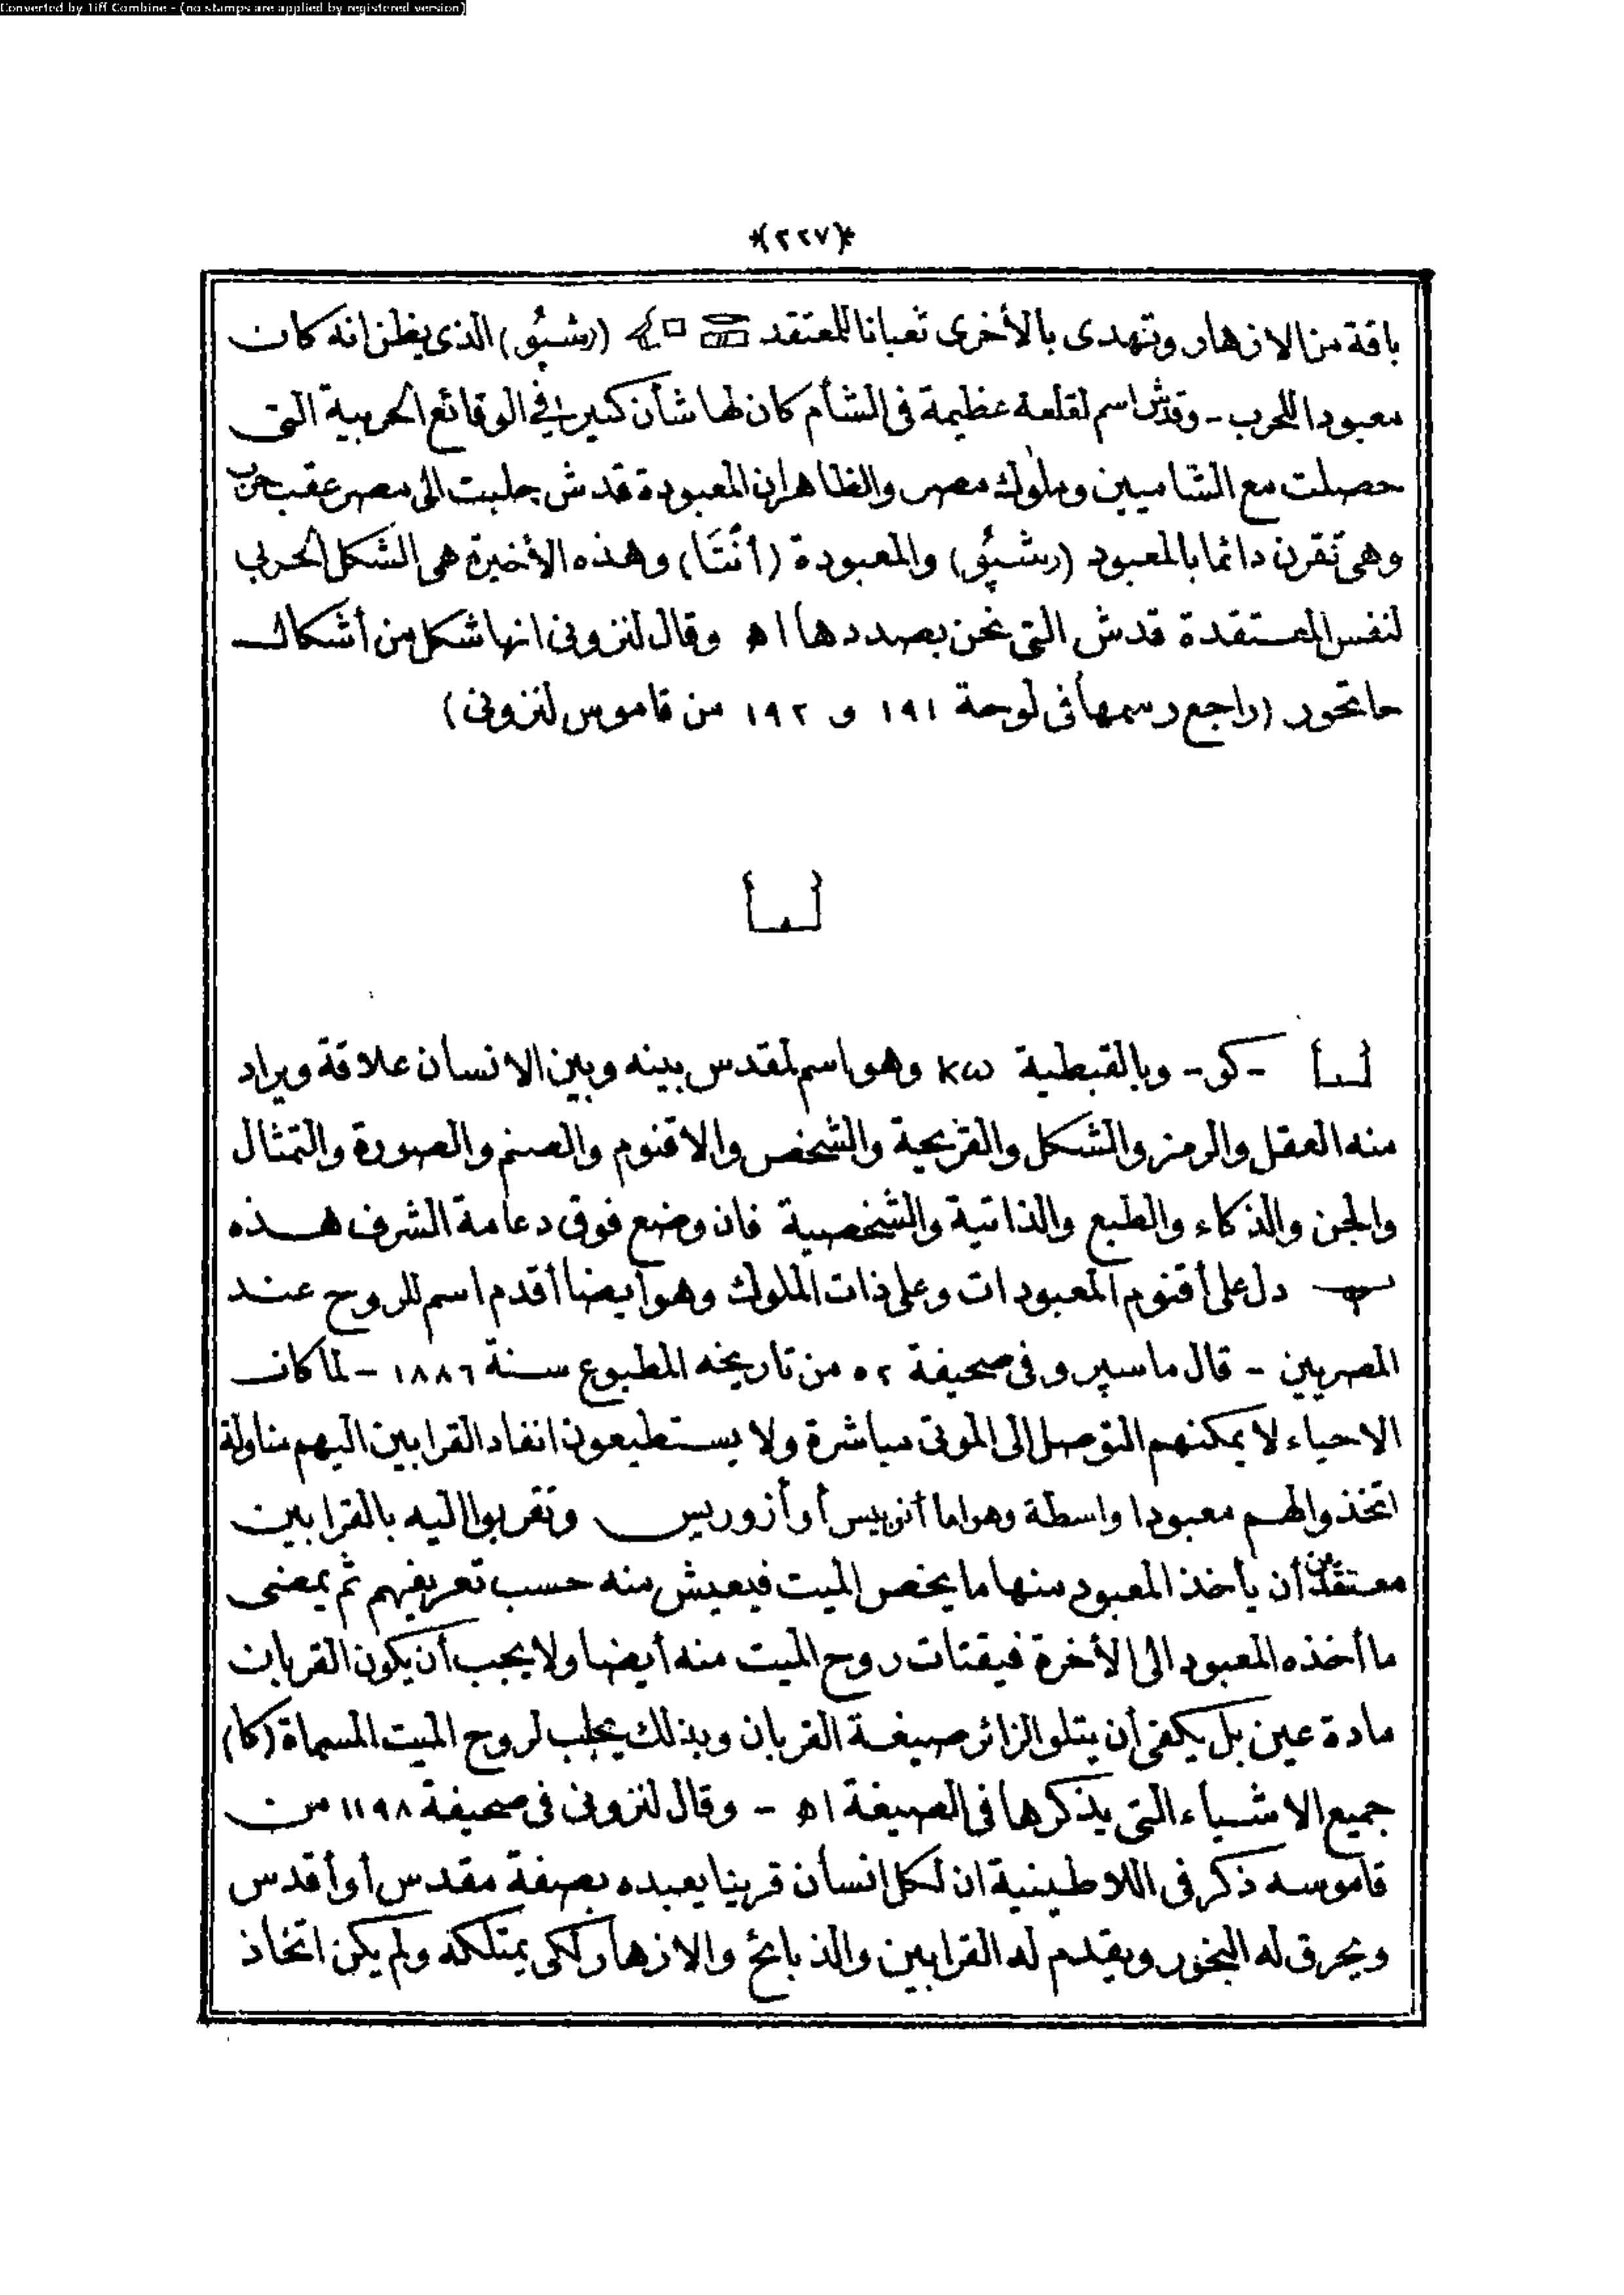 Converted by Tiff Combine - (no stamps are applied by registered version)
*(٢٢٧)*
باقة من الازهار وتهدى بالأخرى ثعبانا للمعتقد (رشپُو) الذى يظن انه كان
معبودا للحرب - وقدش اسم لقلعة عظيمة فى الشأم كان لها شأن كبير فى الوقائع الحربية التى
حصلت مع الشاميين وملوك مصر والظاهر ان المعبودة قدش جلبت الى مصر عقب حرب
وهى تقرن دائما بالمعبود (رشپُو) والمعبودة (أَنْتَا) وهذه الأخيرة هى الشكل الحربى
لنفس المعتقدة قدش التى نحن بصددها اه وقال لنزونى انها شكل من أشكال
حاتحور (راجع رسمها فى لوحة ١٩١ و ١٩٢ من قاموس لنزونى)
𓂓
𓂓 - كو - وبالقبطية κω وهو اسم لمقدس بينه وبين الانسان علاقة ويراد
منه العقل والرمز والشكل والقريحة والشخص والاقنوم والصنم والصورة والتمثال
والجن والذكاء والطبع والذاتية والشخصية فان وضع فوق دعامة الشرف هذه
دل على أقنوم المعبودات وعلى ذات الملوك وهو أيضا أقدم اسم للروح عند
المصريين - قال ماسپرو فى صحيفة ٥٢ من تاريخه المطبوع سنة ١٨٨٦ - لما كان
الاحياء لا يمكنهم التوصل الى الموتى مباشرة ولا يستطيعون انفاد القرابين اليهم مناولة
اتخذوا لهم معبودا واسطة وهو اما أنوبيس أو أزوريس وتقربوا اليه بالقرابين
معتقدين أن يأخذ المعبود منها ما يخص الميت فيعيش منه حسب تعريفهم ثم يمضى
ما أخذه المعبود الى الأخرة فيقتات روح الميت منه أيضا ولا يجب أن يكون القربان
مادة عين بل يكفى أن يتلو الزائر صيغة القربان وبذلك يجلب لروح الميت المسماة (كا)
جميع الاشياء التى يذكرها فى الصيغة اه - وقال لنزونى فى صحيفة ١١٩٨ من
قاموسه ذكر فى اللاطينية ان لكل انسان قرينا يعبده بصفة مقدس أو أقدس
ويحرق له البخور ويقدم له القرابين والذبائح والازهار لكى يمتلكه ولم يكن اتخاذ